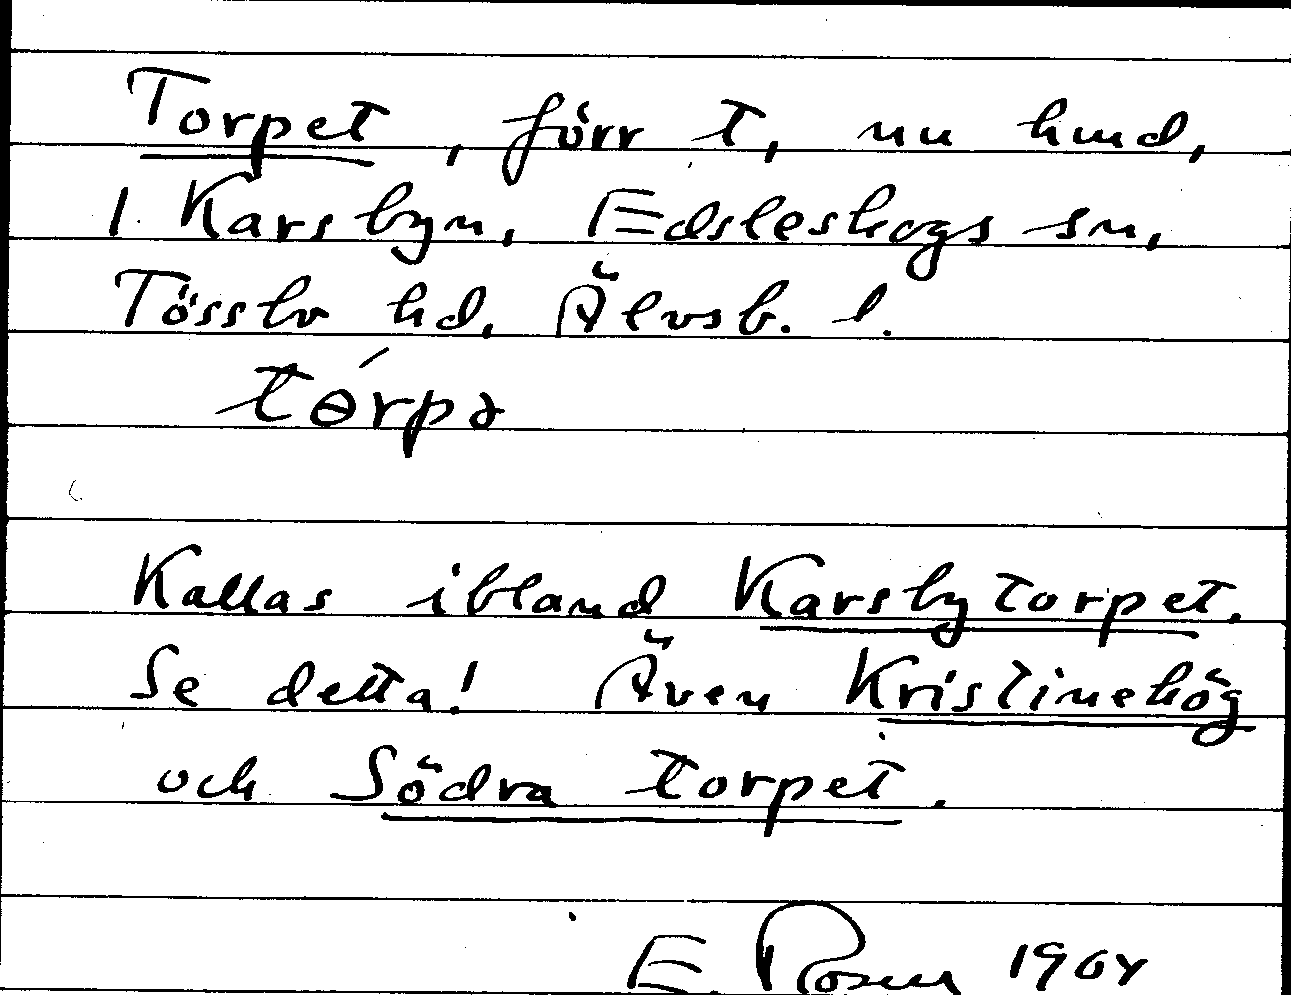 Torpet, förr t, nu hmd,
1 Karsbyn, Edsleskogs sn,
Tössbo hd, Älvsb. l.
tórpə
Kallas ibland Karsbytorpet.
Se detta! Även Kristinehög
och Södra torpet.
E. Rosen 1904